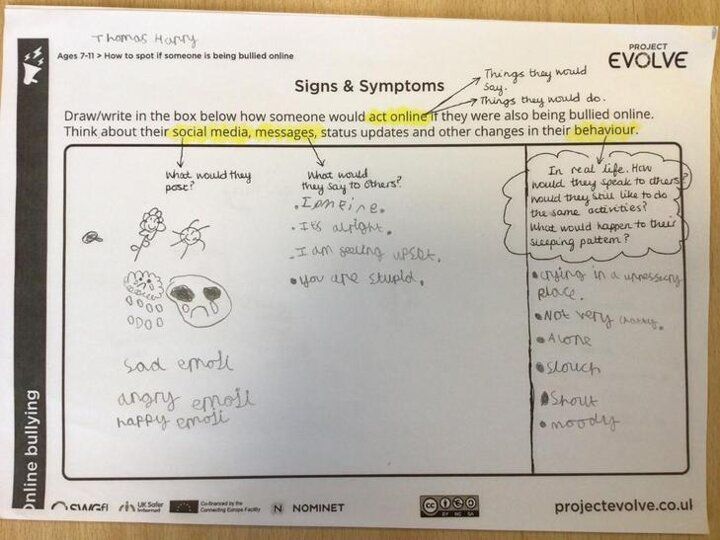 Thomas Harry
Ages 7-11 > How to spot if someone is being bullied online
PROJECT
EVOLVE
Signs & Symptoms
Things they would
say.
Things they would do.
Draw/write in the box below how someone would act online if they were also being bullied online.
Think about their social media, messages, status updates and other changes in their behaviour.
What would they
post?
sad emoji
angry emoji
happy emoji
What would
they say to others?
I am fine.
. Its alright.
. I am feeling upset.
• you are stupid.
In real life. How
would they speak to others?
Would they still like to do
the same activities?
What would happen to their
sleeping pattern?
• crying in a unnessecery
place.
• Not very chatty.
• Alone
• Slouch
• Shout
• moody
Online bullying
SWGfL
UK Safer
Internet
Co-financed by the
Connecting Europe Facility
N NOMINET
CC
BY NC SA
projectevolve.co.uk